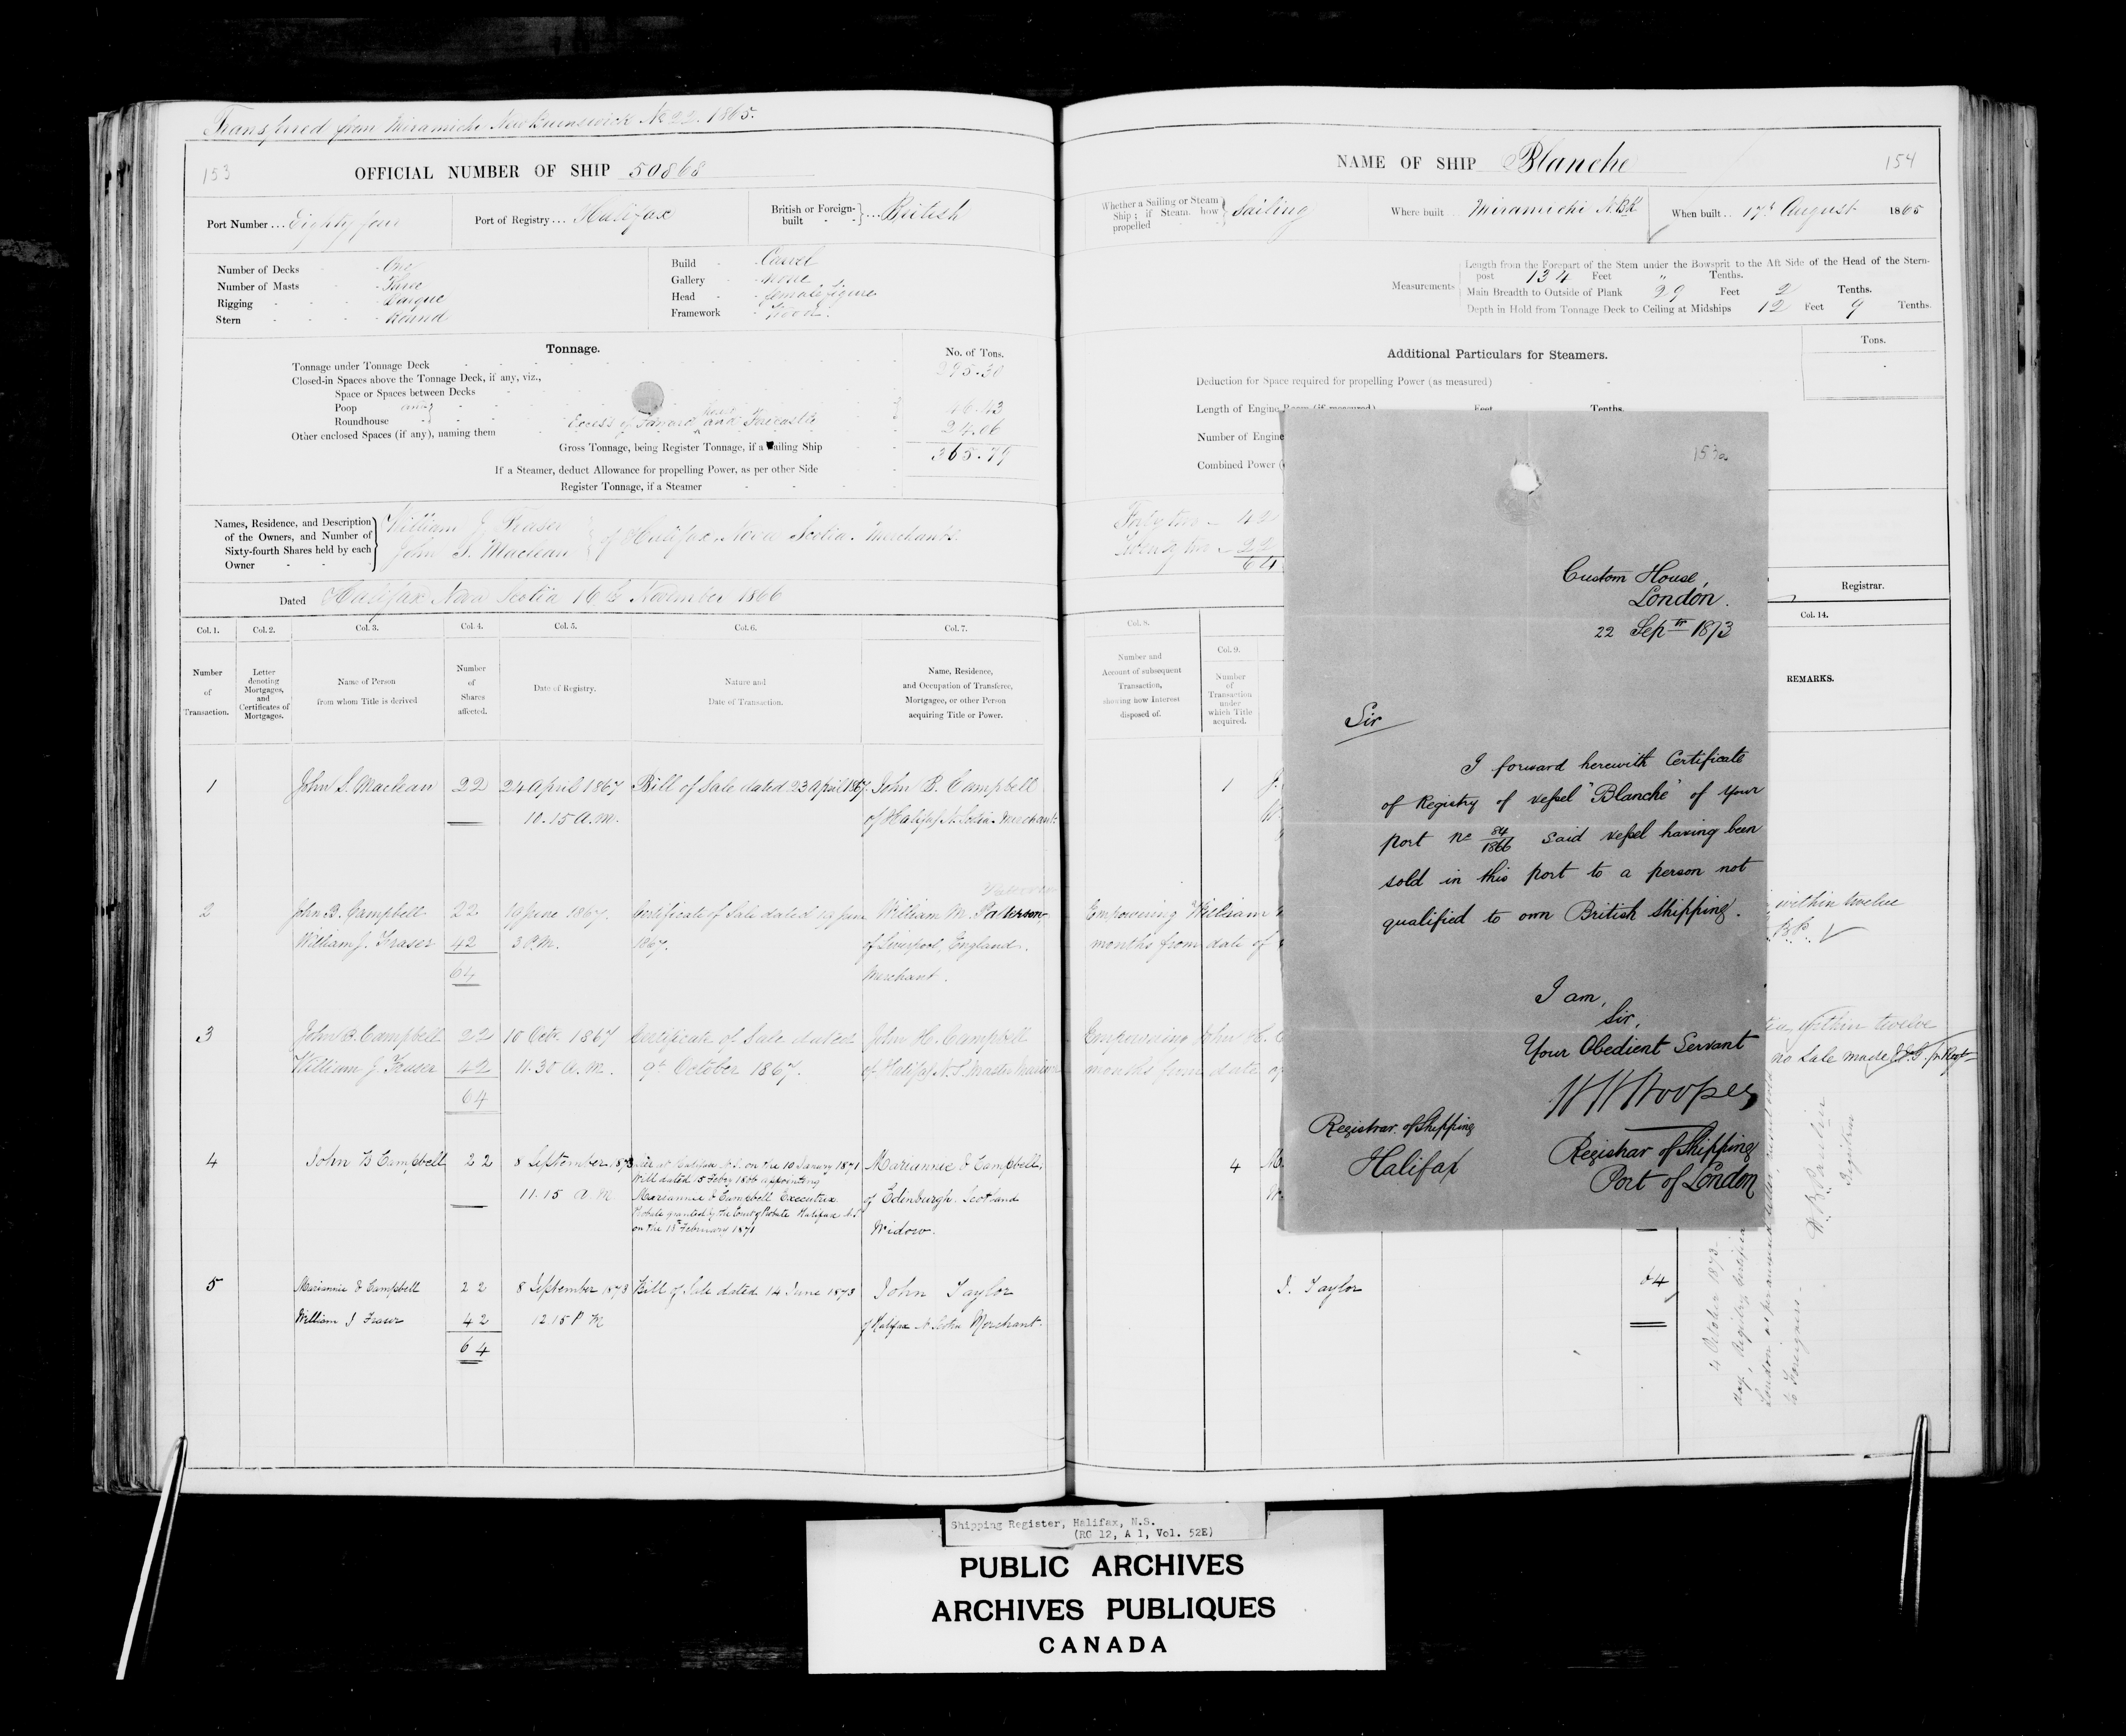 Transferred from Miramichi New Brunswick No 22. 1865.
153
OFFICIAL NUMBER OF SHIP 50868
Port Number ... Eighty four
Port of Registry ... Halifax
British or Foreign-built } ... British
Number of Decks - One
Number of Masts - Three
Rigging - Barque
Stern - Round
Build - Carvel
Gallery - None
Head - female figure
Framework - Wood.
Tonnage.
No. of Tons.
Tonnage under Tonnage Deck
Closed-in Spaces above the Tonnage Deck, if any, viz.,
Space or Spaces between Decks
Poop
Roundhouse
Other enclosed Spaces (if any), naming them
Excess of and Forecastle
24.06
Gross Tonnage, being Register Tonnage, if a Sailing Ship
365.79
If a Steamer, deduct Allowance for propelling Power, as per other Side
Register Tonnage, if a Steamer
Names, Residence, and Description of the Owners, and Number of Sixty-fourth Shares held by each Owner
William J. Fraser
John S. Maclean } of Halifax Nova Scotia. Merchants.
Dated Halifax Nova Scotia 16th November 1866
Col. 1. Col. 2. Col. 3. Col. 4. Col. 5. Col. 6. Col. 7.
Number of Transaction.
Letter denoting Mortgages, and Certificates of Mortgages.
Name of Person from whom Title is derived
Number of Shares affected.
Date of Registry.
Nature and Date of Transaction.
Name, Residence, and Occupation of Transferee, Mortgagee, or other Person acquiring Title or Power.
1 John S. Maclean 22 24 April 1867 Bill of Sale dated 23 April 1867. John B. Campbell
10.15 A.M. of Halifax N. Scotia Merchant.
2 John B. Campbell 22 19 June 1867. Certificate of Sale dated 19 June William M. Patterson
William J. Fraser 42 3 P.M. 1867. of Liverpool, England.
64 Merchant.
3 John B. Campbell 22 10 Octr. 1867 Certificate of Sale dated John H. Campbell
William J. Fraser 42 11.30 A.M. 9th October 1867. of Halifax N.S. Master Mariner
64
4 John B Campbell 22 8 September 1873 on the 10 January 1871 Mariannie D Campbell,
Will dated 15 Feby 1866 appointing
11.15 A M Mariannie D Campbell Executrix of Edinburgh. Scotland
Probate granted by the Court of Probate Halifax N.S
on the 13th February 1871 Widow.
5 Mariannie D Campbell 22 8 September 1873 Bill of Sale dated 14 June 1873 John Taylor
William J Fraser 42 12 15 P M of Halifax N Scotia Merchant.
64
NAME OF SHIP Blanche
154
Whether a Sailing or Steam Ship; if Steam, how propelled } Sailing
Where built .. Miramichi N.BK
When built .. 17th August 1865
Measurements
Length from the Forepart of the Stem under the Bowsprit to the Aft Side of the Head of the Stern-
post 134 Feet " Tenths.
Main Breadth to Outside of Plank 29 Feet 2 Tenths.
Depth in Hold from Tonnage Deck to Ceiling at Midships 12 Feet 9 Tenths.
Additional Particulars for Steamers.
Tons.
Deduction for Space required for propelling Power (as measured)
Length of Engine Room (if measured) Feet Tenths.
Number of Engine
Combined Power
Forty two - 42
Twenty two - 22
64
Registrar.
Col. 8. Col. 9. Col. 14.
Number and Account of subsequent Transaction, showing how Interest disposed of.
Number of Transaction under which Title acquired.
REMARKS.
1
Empowering William
months from date of
within twelve
Empowering John H. C
months from date of
within twelve
no Sale made
4
J. Taylor 64
4 October 1873
London
to Foreigners.
Registrar
153a
Custom House,
London.
22 Septr 1873
Sir
I forward herewith Certificate
of Registry of vessel "Blanche" of your
port No 84/1866 said vessel having been
sold in this port to a person not
qualified to own British Shipping.
I am,
Sir,
Your Obedient Servant
Registrar of Shipping
Port of London
Registrar of Shipping
Halifax
Shipping Register, Halifax, N.S.
(RG 12, A 1, Vol. 52E)
PUBLIC ARCHIVES
ARCHIVES PUBLIQUES
CANADA